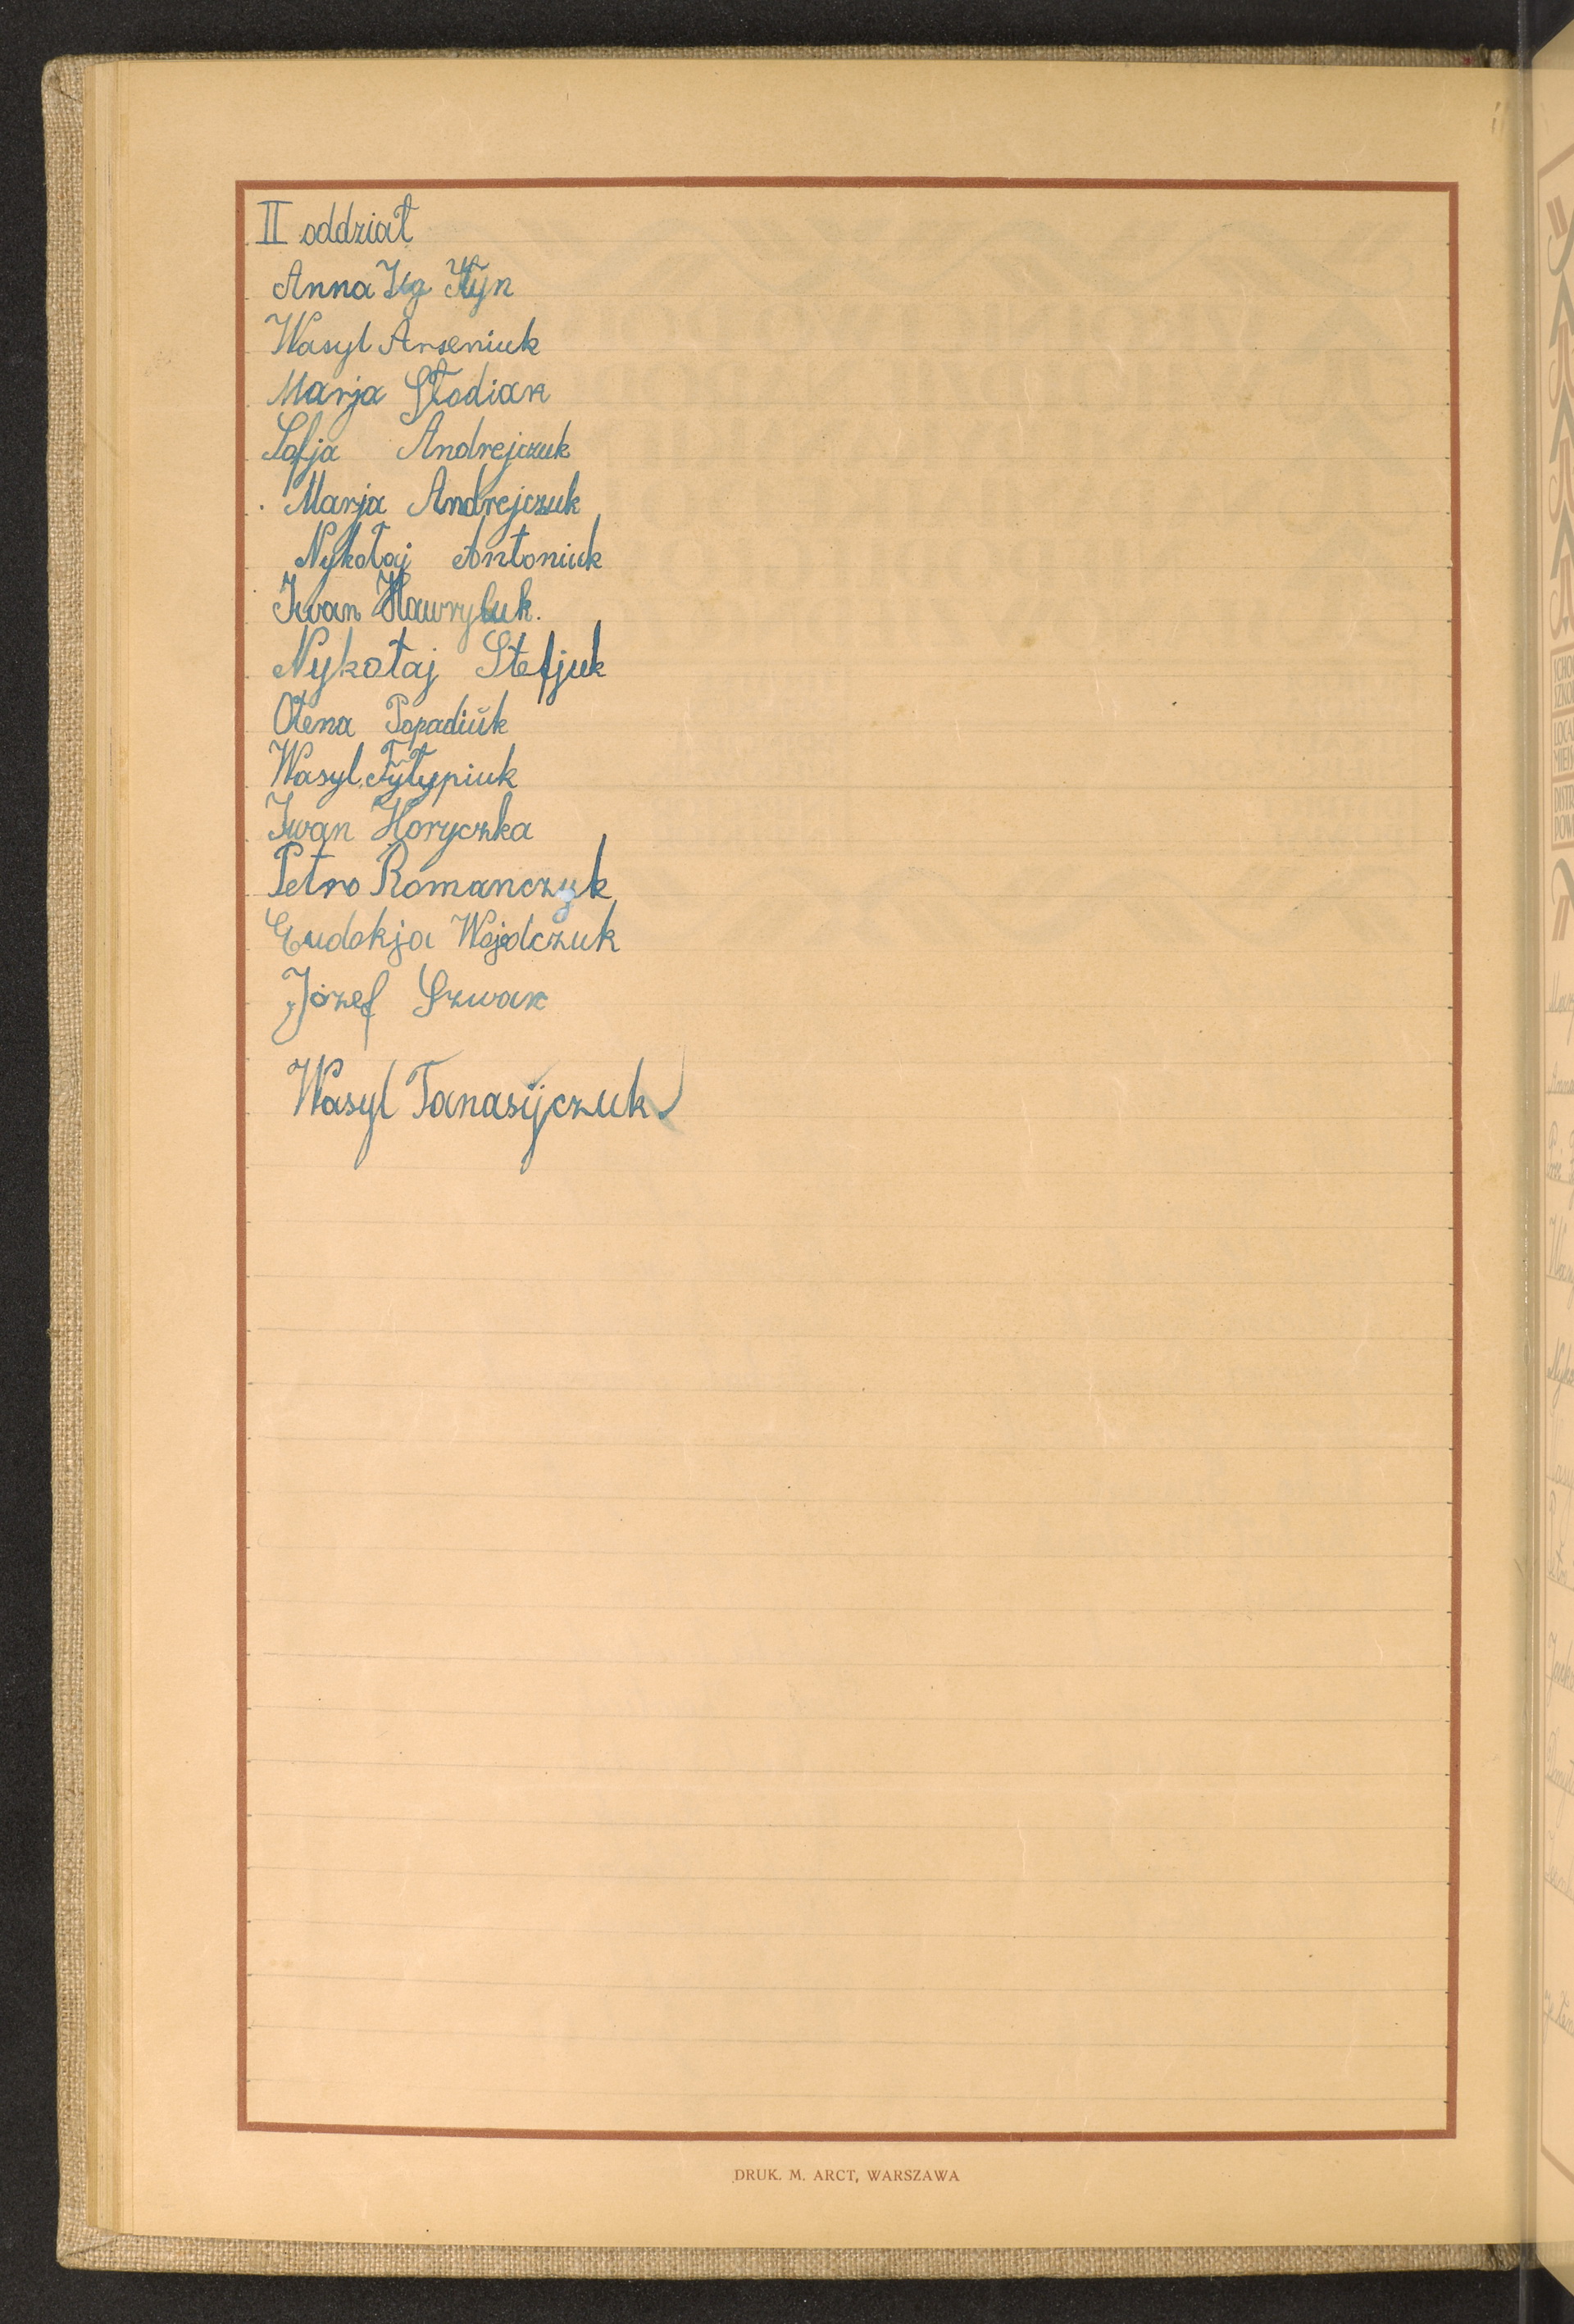 II oddział
Anna
Wasyl Arseniuk
Marja Słodian
Sofja Andrejczuk
Marja Andrejczuk
Nykołaj Antoniuk
Iwan Hawryluk.
Nykołaj Stefjuk
Ołena Popadiŭk
Wasyl Fyłypiuk
Iwan Horyczka
Petro Romanczyk
Eudokja Wojodczuk
Józef Szwan
Wasyl Tanasijczuk
DRUK. M. ARCT, WARSZAWA